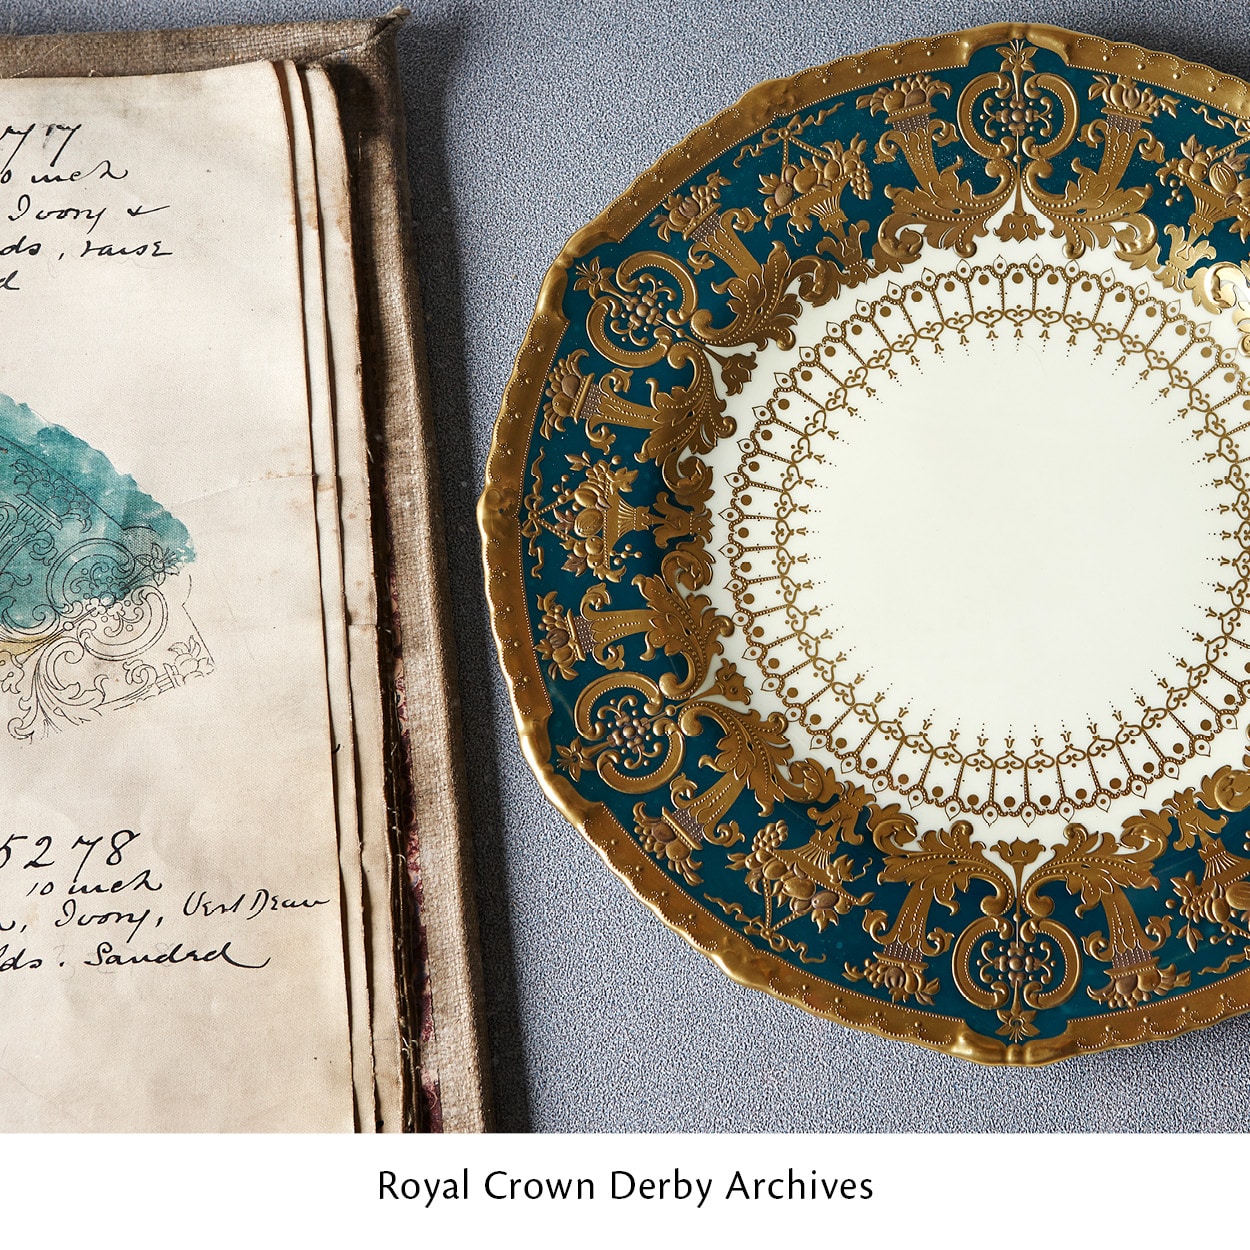 inch
Ivory &
ds, raise
d
5278
10 inch
Ivory, Vert D'eau
ds. Sanded
Royal Crown Derby Archives